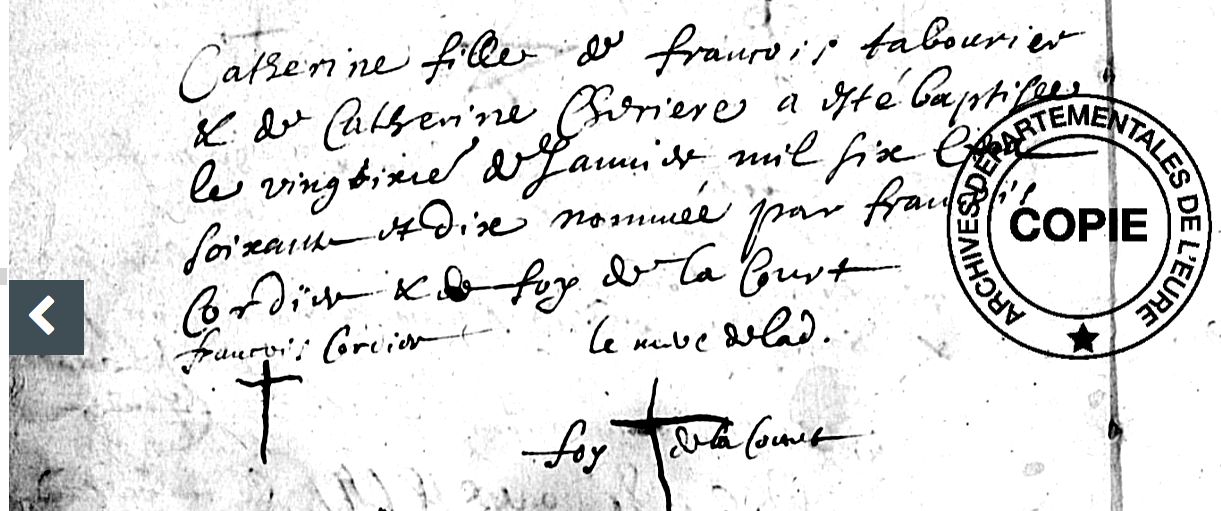 Catherine fille de francois tabourier
& de Catherine Cheriere a esté baptisee
le vingtixme de Januier mil six Cent
soixante et dix nommée par francois
Cordier & de foy de la Court
francois Cordier le de lad.
foy de la Court
ARCHIVES DÉPARTEMENTALES DE L'EURE
COPIE